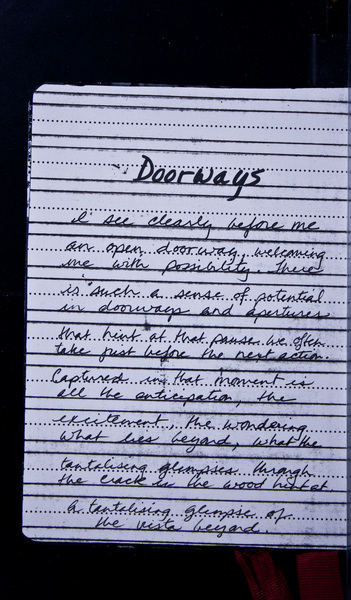 Doorways
I see clearly before me
an open doorway, welcoming
me with possibility. There
is such a sense of potential
in doorways and apertures
that hint at that pause we often
take just before the next action.
Captured in that moment is
all the anticipation, the
excitement, the wondering
what lies beyond, what the
tantalising glimpses through
the crack in the wood hint at.
A tantalising glimpse of
the vista beyond.